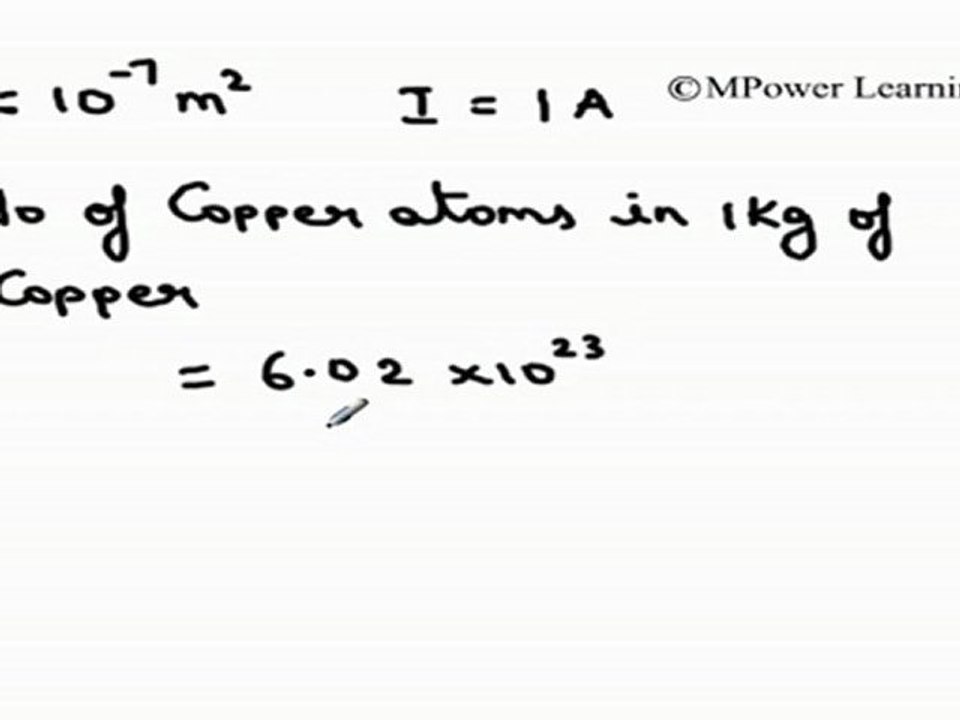 = 10⁻⁷ m² I = 1 A ©MPower Learni
of Copper atoms in 1Kg of
Copper
= 6.02 ×10²³